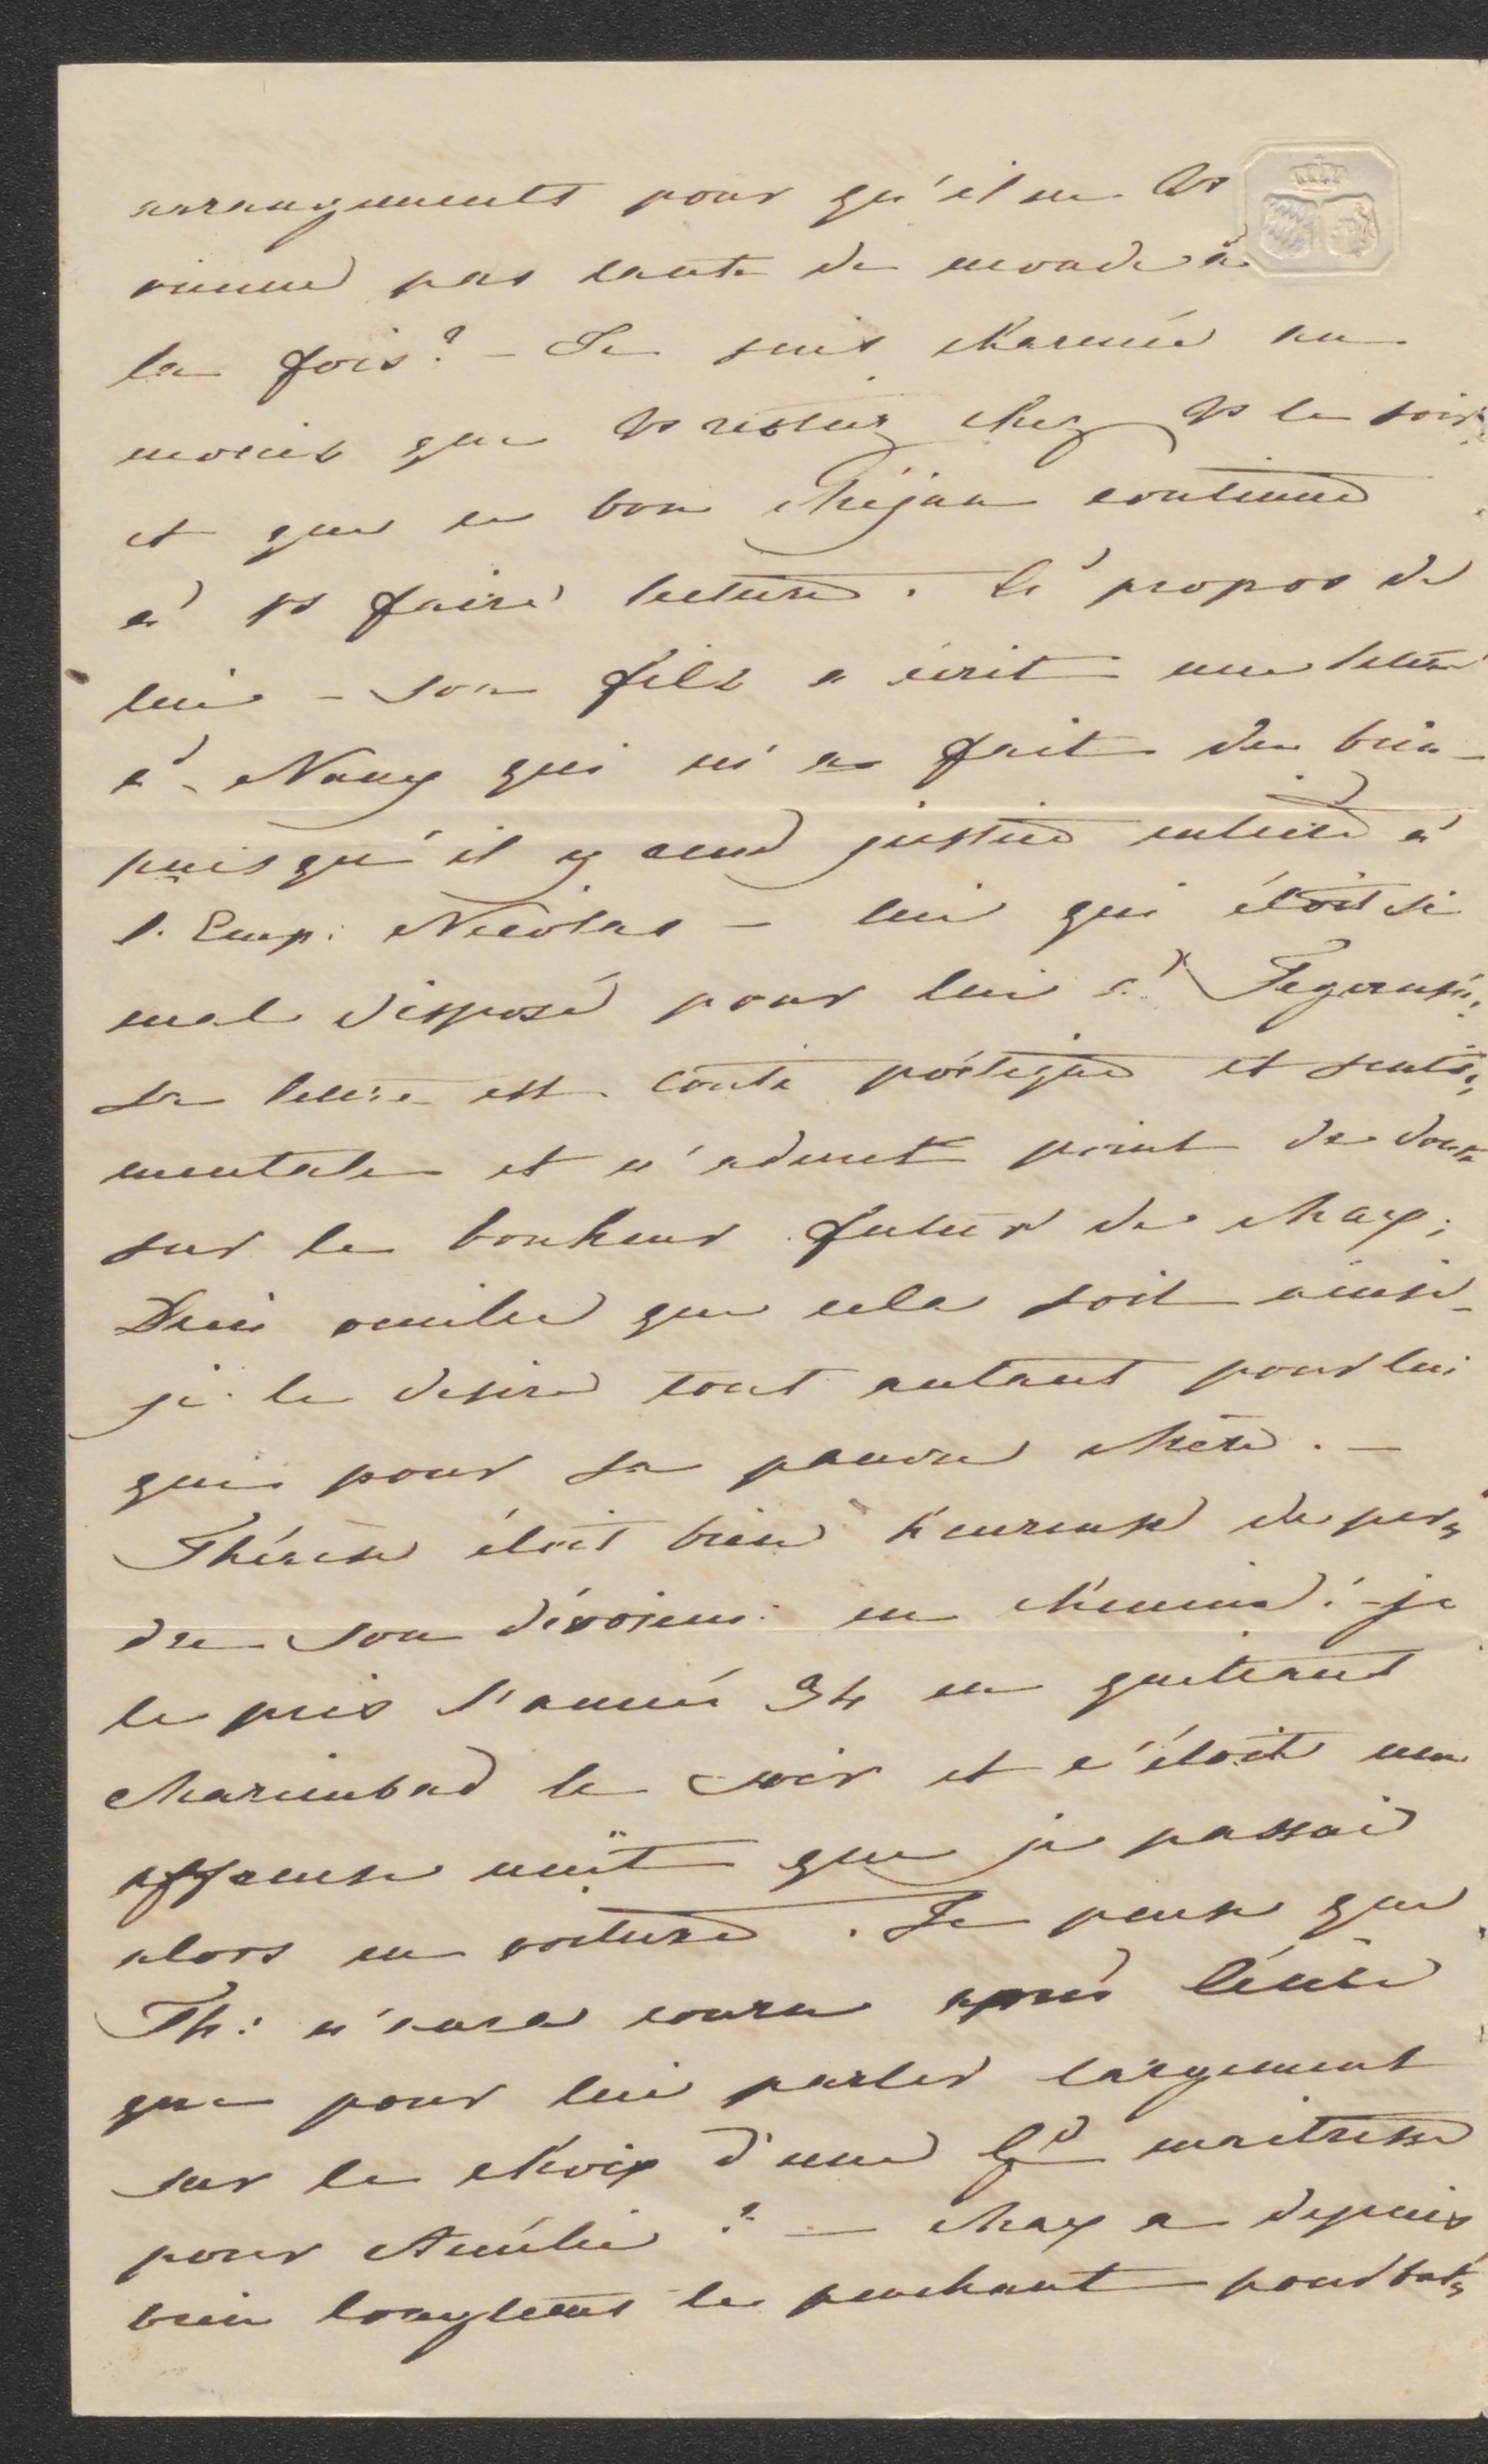 arrangements pour qu'il ne vs
vienne pas tante de monde à
la fois? – Je suis charmée au
moins que vs restiez chez vs le soir
et que ce bon Méjan continue
à vs faire lecture. À propos de
lui – son fils a écrit une lettre
à Nany qui m'a fait du bien –
puisqu'il y rend justice entière à
l'Emp: Nicolas – lui qui étoit si
mal disposé pour lui à Tegernsée;
sa lettre est toute poétique et senti,
mentale et n'admet point de doute
sur le bonheur futur de Max;
Dieu veuille que cela soit ainsi –
je le desire tout autant pour lui
que pour sa pauvre Mère. –
Thérèse étoit bien heureuse de per,
dre son dévoiem: en chemin: – je
le pris l'année 34 en quittant
Marienbad le soir et c'étoit une
affreuse nuit que je passai
alors en voiture. Je pense que
Th: n'aura couru après
que pour lui parler largement
sur le choix d'une Gde maitresse
pour Amélie? – Max a depuis
bien longtems le penchant pour